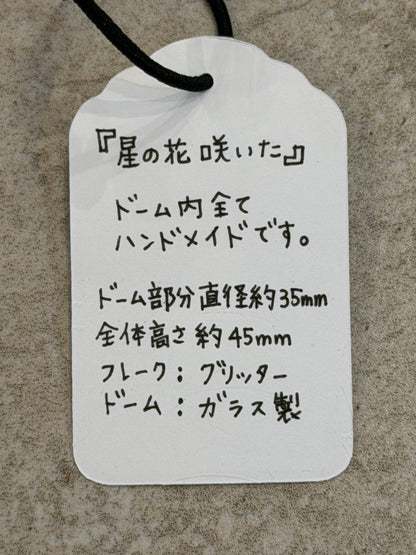 『星の花咲いた』
ドーム内全て
ハンドメイドです。
ドーム部分直径約35mm
全体高さ約45mm
フレーク：グリッター
ドーム：ガラス製